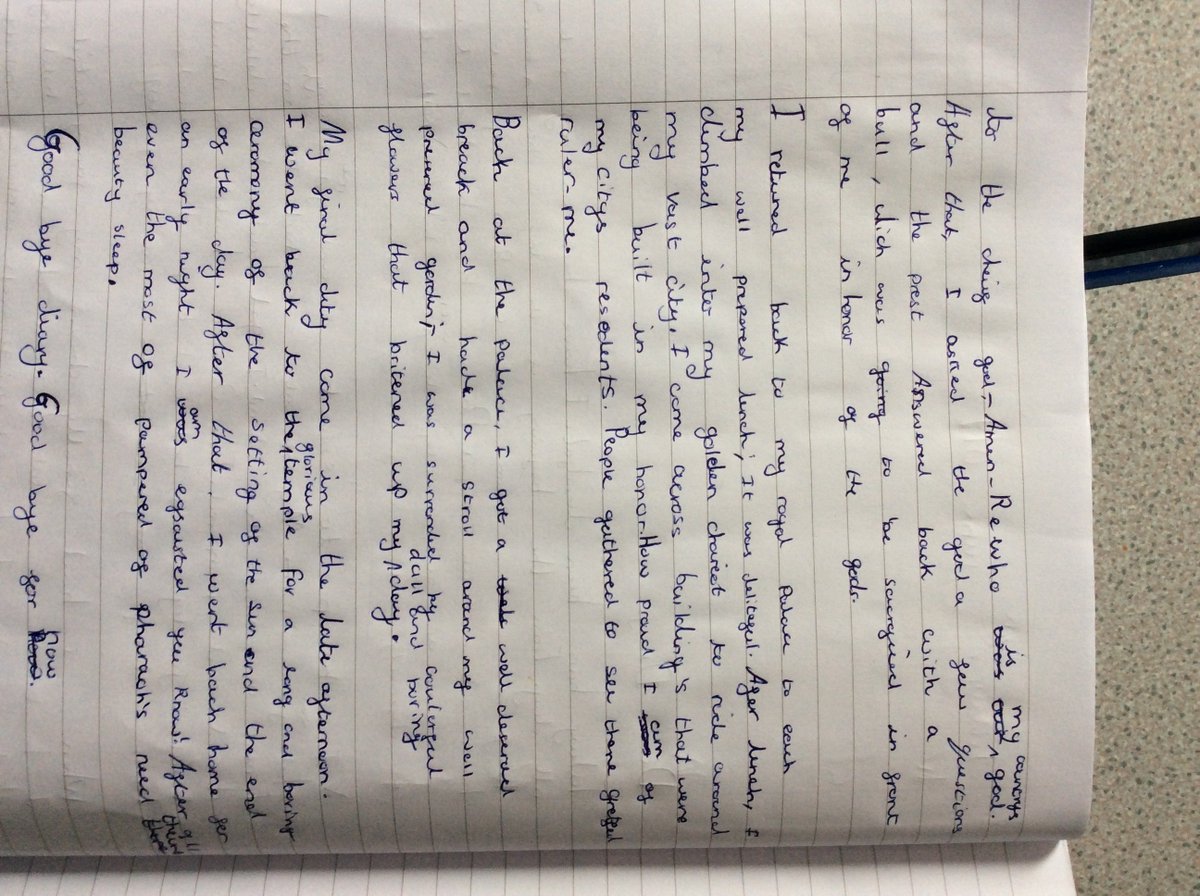 my amongs
to the cheing god - Amen-Re who is god.
After that, I asked the god a few questions
and the prest Answered back with a
bull, which was going to be sacrificed in front
of me in honor of the god.
I returned back to my royal Palace to each
my well prepered lunch; It was deliteful. After lunch, I
climbed into my golden chareit to ride around
my vast city, I come across building's that were
being built in my honor. How proud I am of
my citys resedents. People gathered to see there greated
ruler-me.
Back at the palace, I got a well deserved
break and hade a stroll around my well
prepered garden; I was surronded by coulerful
dull and boring
flowers that britened up my day.
My final duty come in the late afternoon.
I went back to the glorious temple for a long and boring
ceramony of the setting of the sun and the end
of the day. After that, I went back home for
an early night I am egsausted you know! After all
even the most of pampered of pharaoh's need their
beauty sleep.
Good bye diary. Good bye for now.